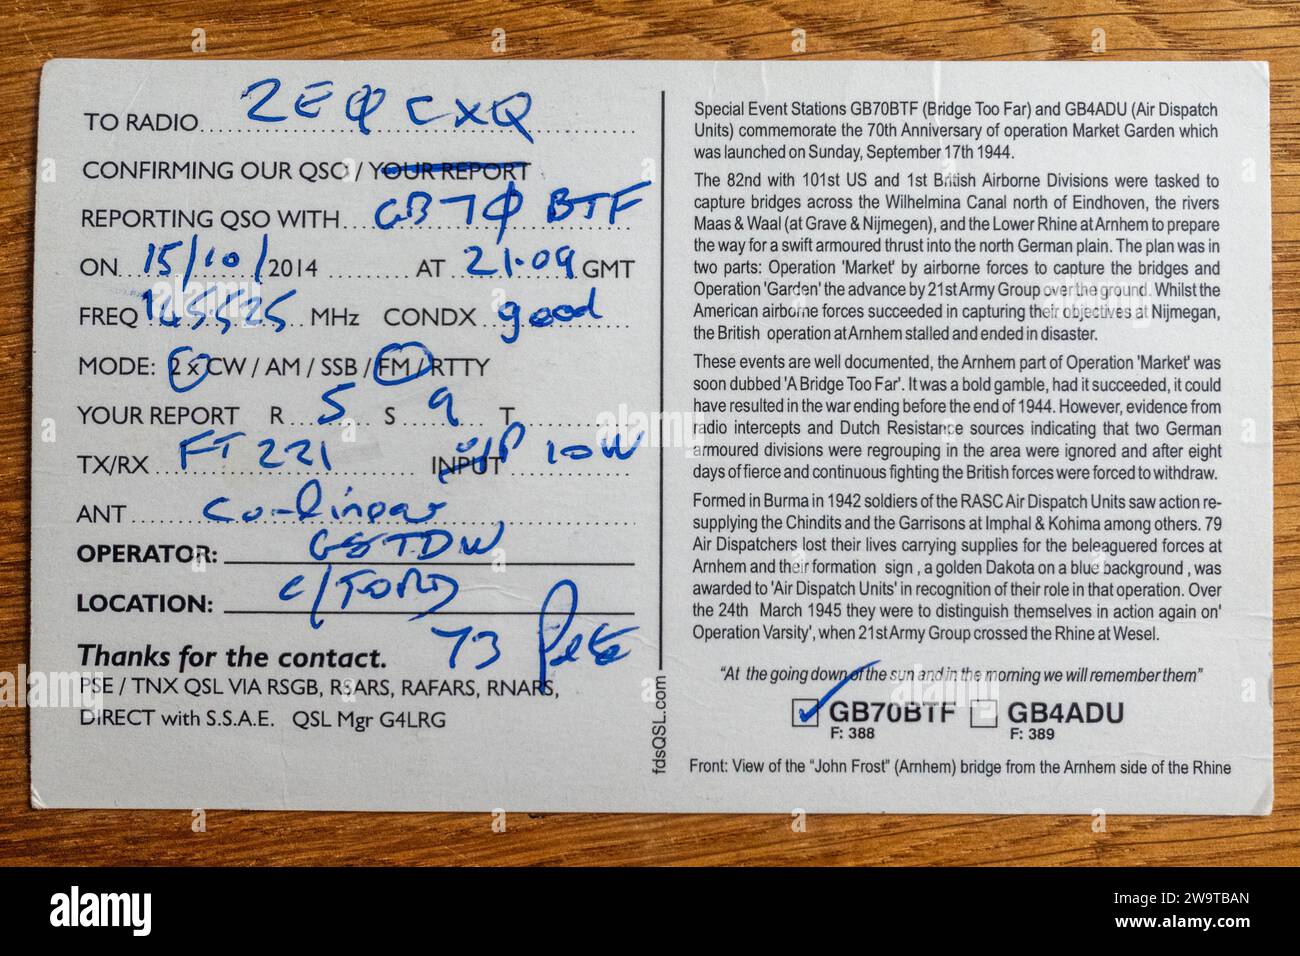 TO RADIO 2EØCXQ
CONFIRMING OUR QSO / YOUR REPORT
REPORTING QSO WITH GB7Ø BTF
ON 15/10/2014 AT 21.09 GMT
FREQ 145525 MHz CONDX good
MODE: 2 x CW / AM / SSB / FM / RTTY
YOUR REPORT R 5 S 9 T
TX/RX FT 221 INPUT O/P 10W
ANT Co-linear
OPERATOR: G8TDW
LOCATION: C/FORD
Thanks for the contact. 73 Pete
PSE / TNX QSL VIA RSGB, RSARS, RAFARS, RNARS,
DIRECT with S.S.A.E. QSL Mgr G4LRG
fdsQSL.com
Special Event Stations GB70BTF (Bridge Too Far) and GB4ADU (Air Dispatch
Units) commemorate the 70th Anniversary of operation Market Garden which
was launched on Sunday, September 17th 1944.
The 82nd with 101st US and 1st British Airborne Divisions were tasked to
capture bridges across the Wilhelmina Canal north of Eindhoven, the rivers
Maas & Waal (at Grave & Nijmegen), and the Lower Rhine at Arnhem to prepare
the way for a swift armoured thrust into the north German plain. The plan was in
two parts: Operation 'Market' by airborne forces to capture the bridges and
Operation 'Garden' the advance by 21st Army Group over the ground. Whilst the
American airborne forces succeeded in capturing their objectives at Nijmegan,
the British operation at Arnhem stalled and ended in disaster.
These events are well documented, the Arnhem part of Operation 'Market' was
soon dubbed 'A Bridge Too Far'. It was a bold gamble, had it succeeded, it could
have resulted in the war ending before the end of 1944. However, evidence from
radio intercepts and Dutch Resistance sources indicating that two German
armoured divisions were regrouping in the area were ignored and after eight
days of fierce and continuous fighting the British forces were forced to withdraw.
Formed in Burma in 1942 soldiers of the RASC Air Dispatch Units saw action re-
supplying the Chindits and the Garrisons at Imphal & Kohima among others. 79
Air Dispatchers lost their lives carrying supplies for the beleaguered forces at
Arnhem and their formation sign , a golden Dakota on a blue background , was
awarded to 'Air Dispatch Units' in recognition of their role in that operation. Over
the 24th March 1945 they were to distinguish themselves in action again on'
Operation Varsity', when 21st Army Group crossed the Rhine at Wesel.
“At the going down of the sun and in the morning we will remember them”
GB70BTF GB4ADU
F: 388 F: 389
Front: View of the “John Frost” (Arnhem) bridge from the Arnhem side of the Rhine
alamy
Image ID: 2W9TBAN
www.alamy.com